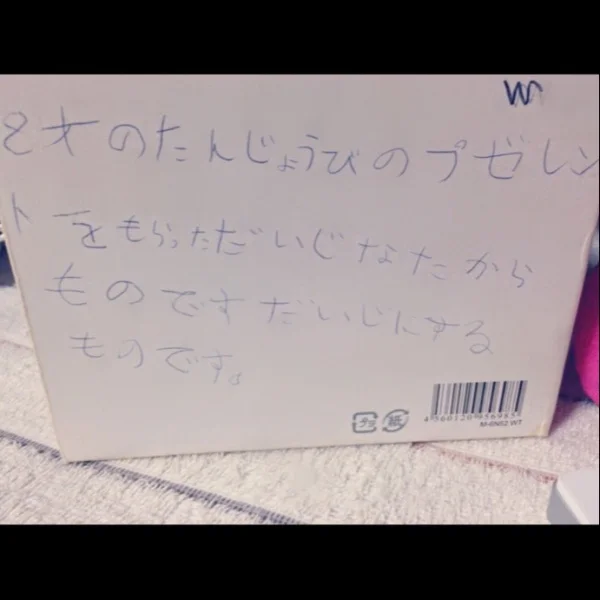 8才のたんじょうびのプゼレン
トをもらっただいじなたから
ものですだいじにする
ものです。
プラ
紙
4560120956985
M-6N52 WT